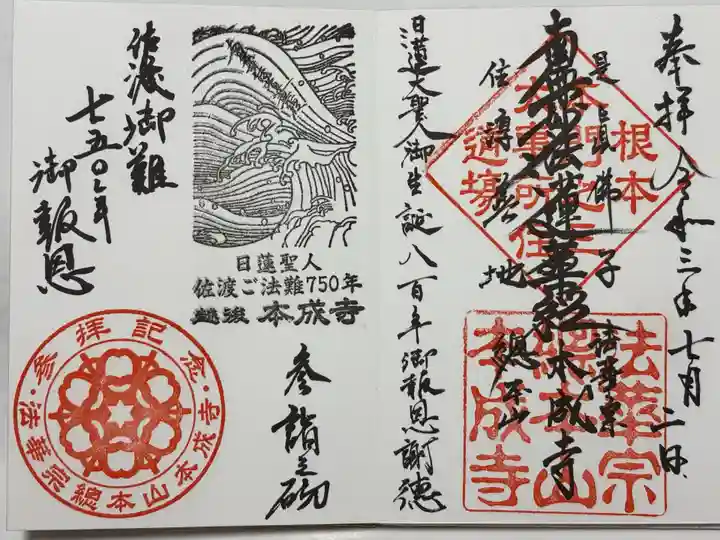 奉拝 令和三年七月二日
是真佛子
南無妙法蓮華経
法華宗
總本山
本成寺
住
地
根本
道場
法華宗
總本山
本成寺
日蓮大聖人御生誕八百年御報恩謝徳
日蓮聖人
佐渡ご法難750年
越後 本成寺
参詣之砌
佐渡御難
七五〇年
御報恩
参拝記念・法華宗總本山本成寺・